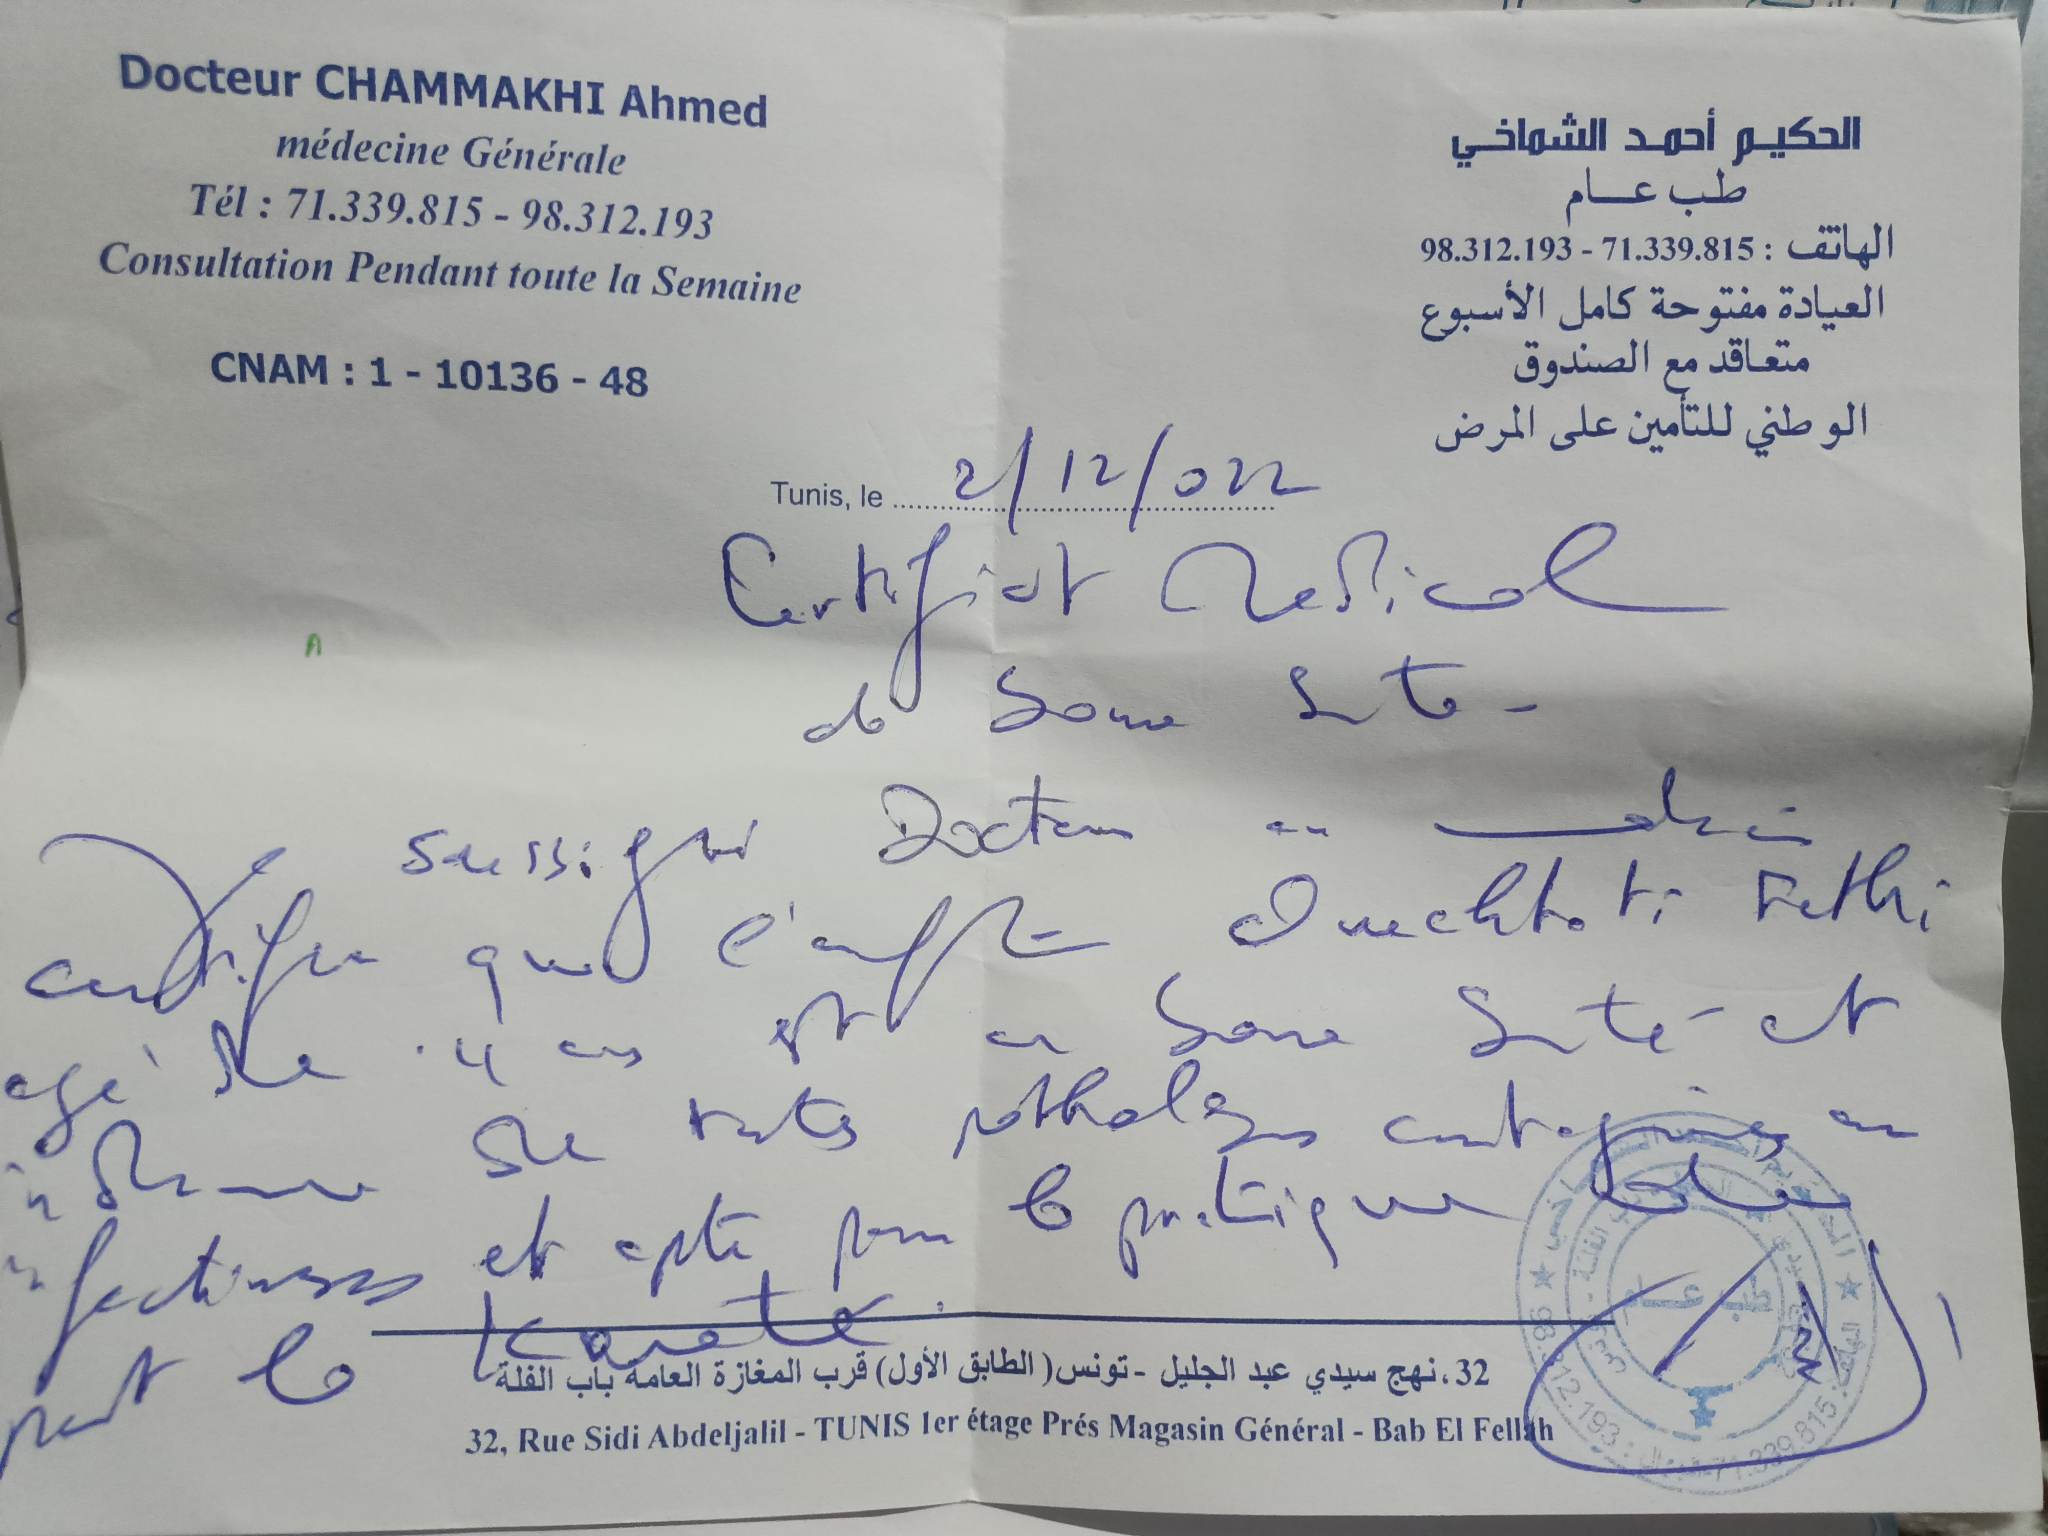 Docteur CHAMMAKHI Ahmed
médecine Générale
Tél : 71.339.815 - 98.312.193
Consultation Pendant toute la Semaine
CNAM : 1 - 10136 - 48
الحكيم أحمد الشماخي
طب عام
الهاتف : 71.339.815 - 98.312.193
العيادة مفتوحة كامل الأسبوع
متعاقد مع الصندوق
الوطني للتأمين على المرض
Tunis, le 2/12/022
Certificat Medical
de Bonne Santé
Je soussigné Docteur en médecine
certifie que l'enfant Ouechtati Fethi
agé de 4 ans est en bonne Santé et
indemne de toutes pathologies contagieuses ou
infectieuses et apte pour la pratique
part le karaté.
32، نهج سيدي عبد الجليل - تونس (الطابق الأول) قرب المغازة العامة باب الفلة
32, Rue Sidi Abdeljalil - TUNIS 1er étage Prés Magasin Général - Bab El Fellah
طب عام
98.312.193 71.339.815